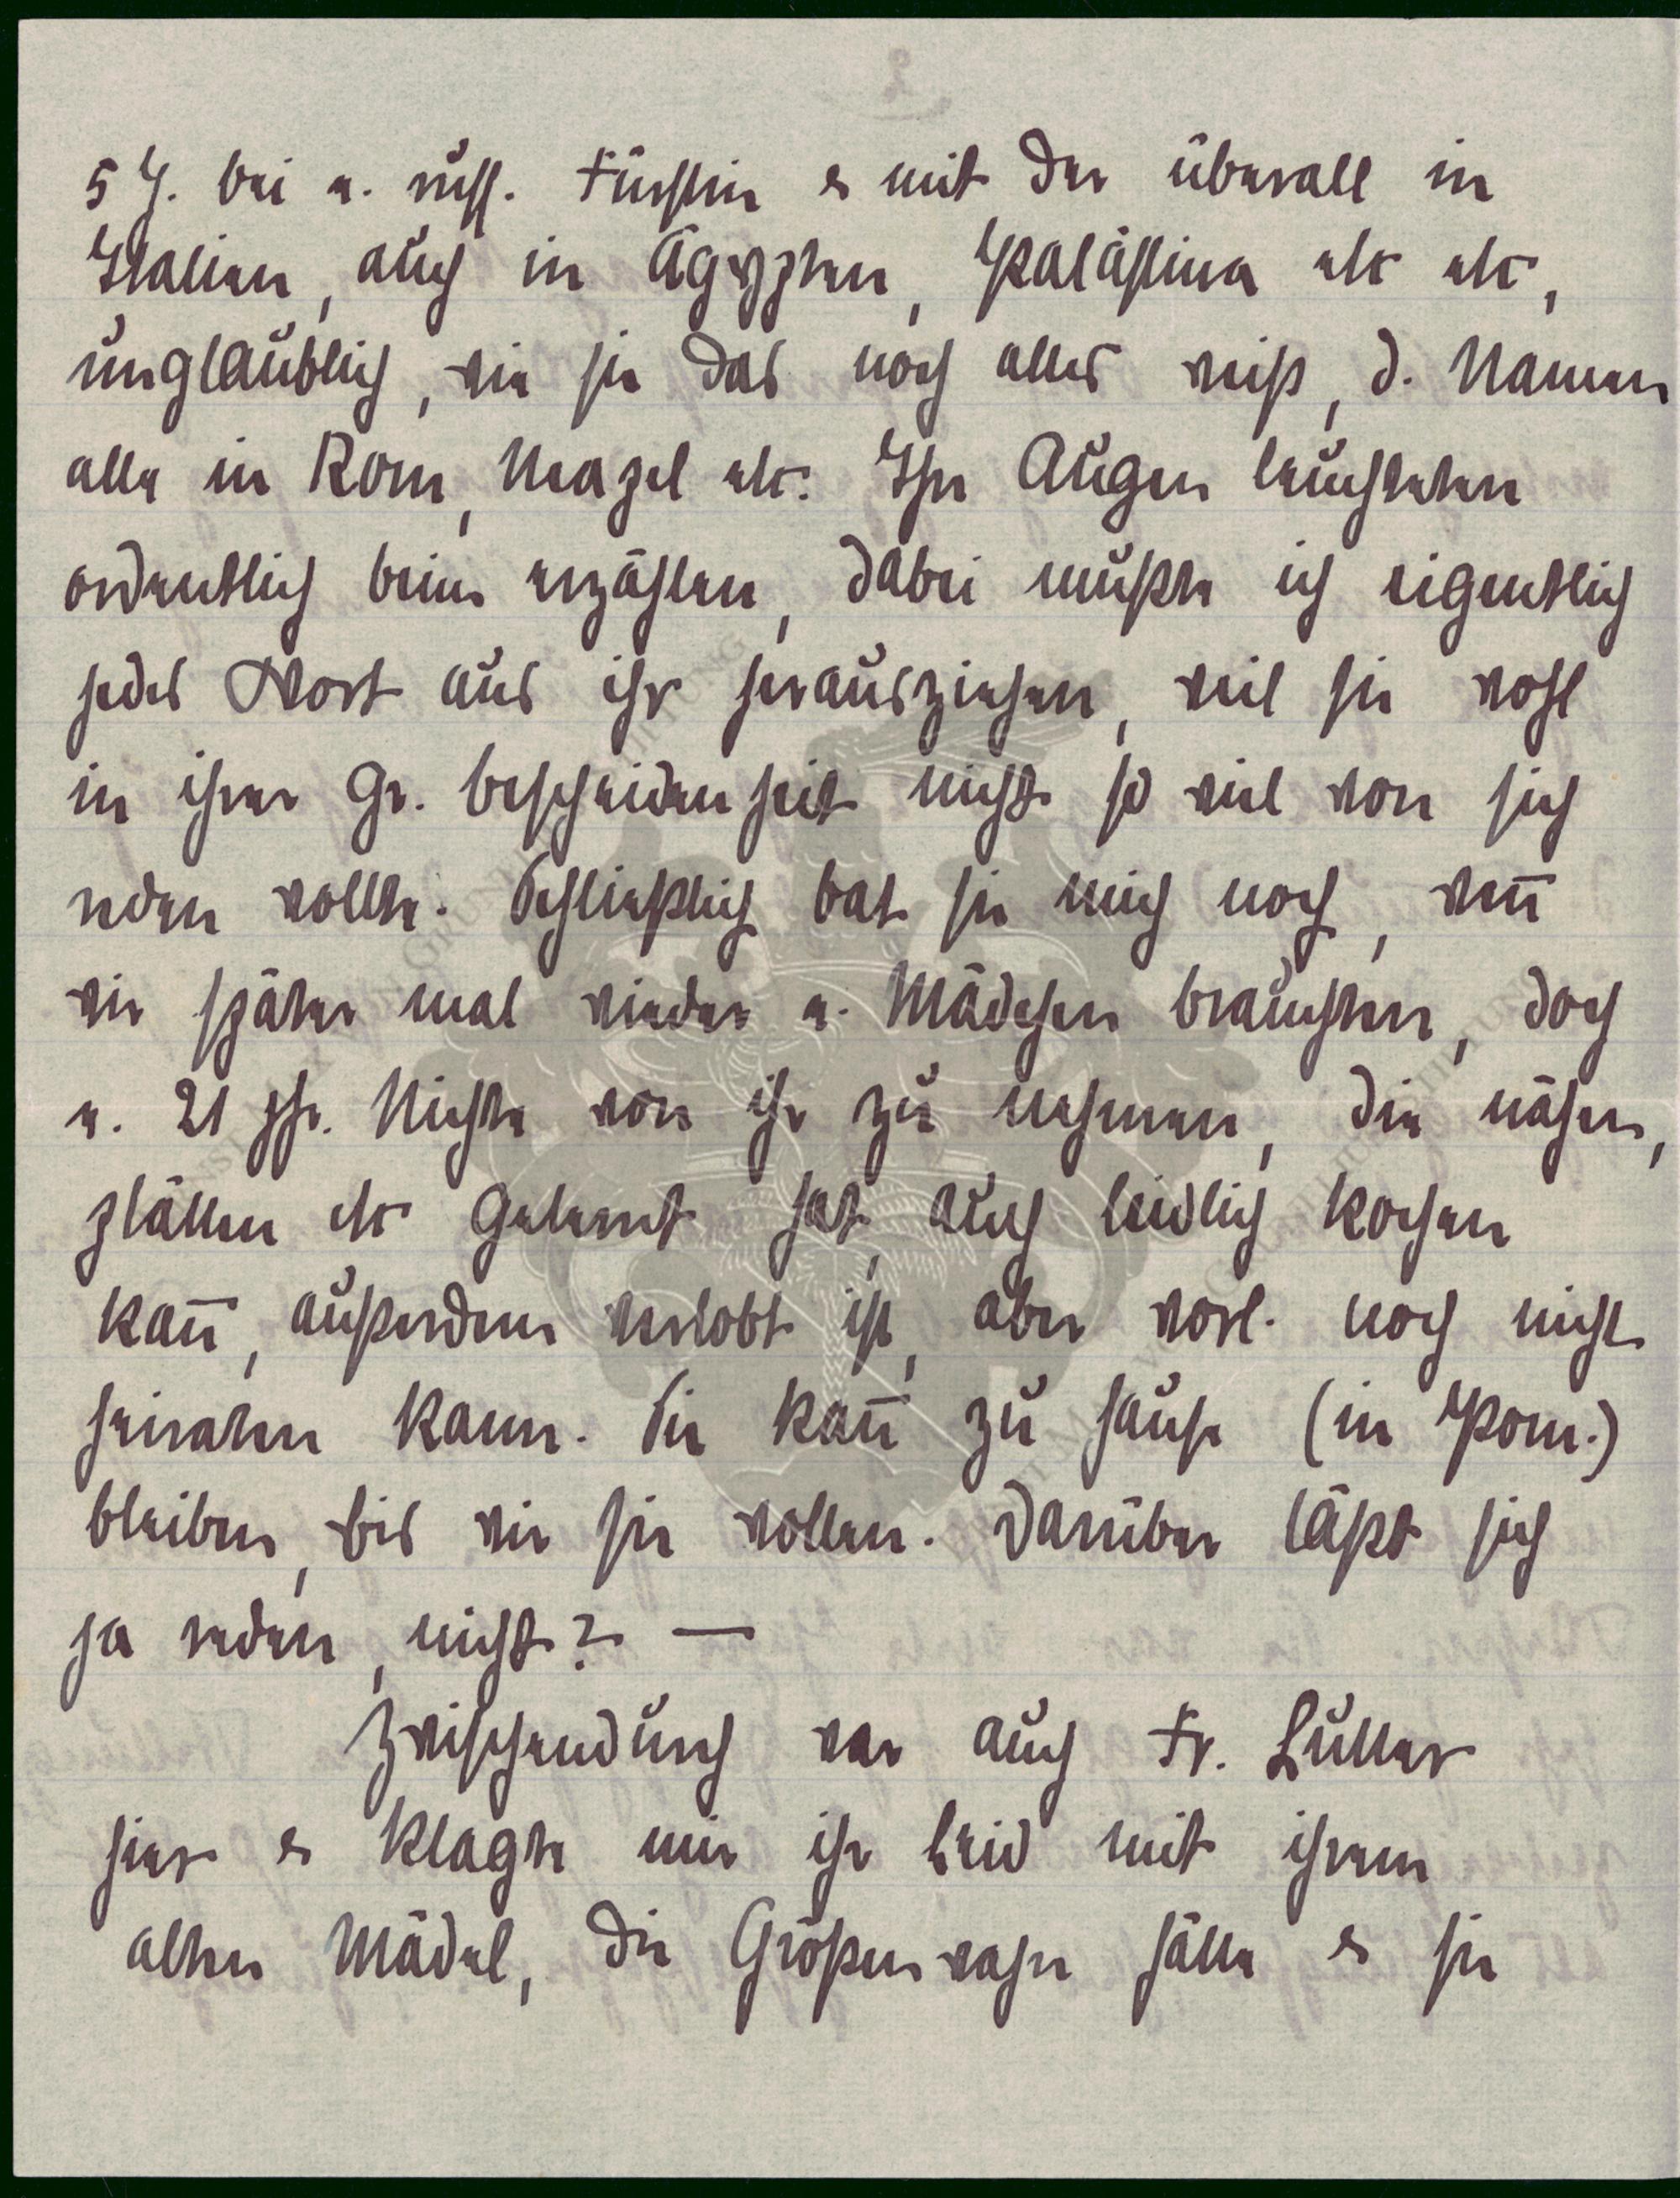 5 J. bei e. russ. Fürstin & mit der überall in
Italien, auch in Ägypten, Palästina etc etc,
unglaublich, wie sie das noch alles weiß, d. Namen
alle in Rom, Neapel etc. Ihre Augen leuchteten
ordentlich beim erzählen, dabei mußte ich eigentlich
jedes Wort aus ihr herausziehen, weil sie wohl
in ihrer gr. Bescheidenheit nicht so viel von sich
reden wollte. Schließlich bat sie mich noch, weñ
wir später mal wieder e. Mädchen brauchten, doch
e. 21 jhr. Nichte von ihr zu nehmen, die nähen,
plätten etc gelernt hat, auch leidlich kochen
kañ, außerdem verlobt ist, aber vorl. noch nicht
heiraten kann. Sie kañ zu Hause (in Pom.)
bleiben, bis wir sie wollen. Darüber läßt sich
ja reden, nicht? —
Zwischendurch war auch Fr. Lüller
hier & klagte mir ihr Leid mit ihrem
alten Mädel, die Größenwahn hätte & sie